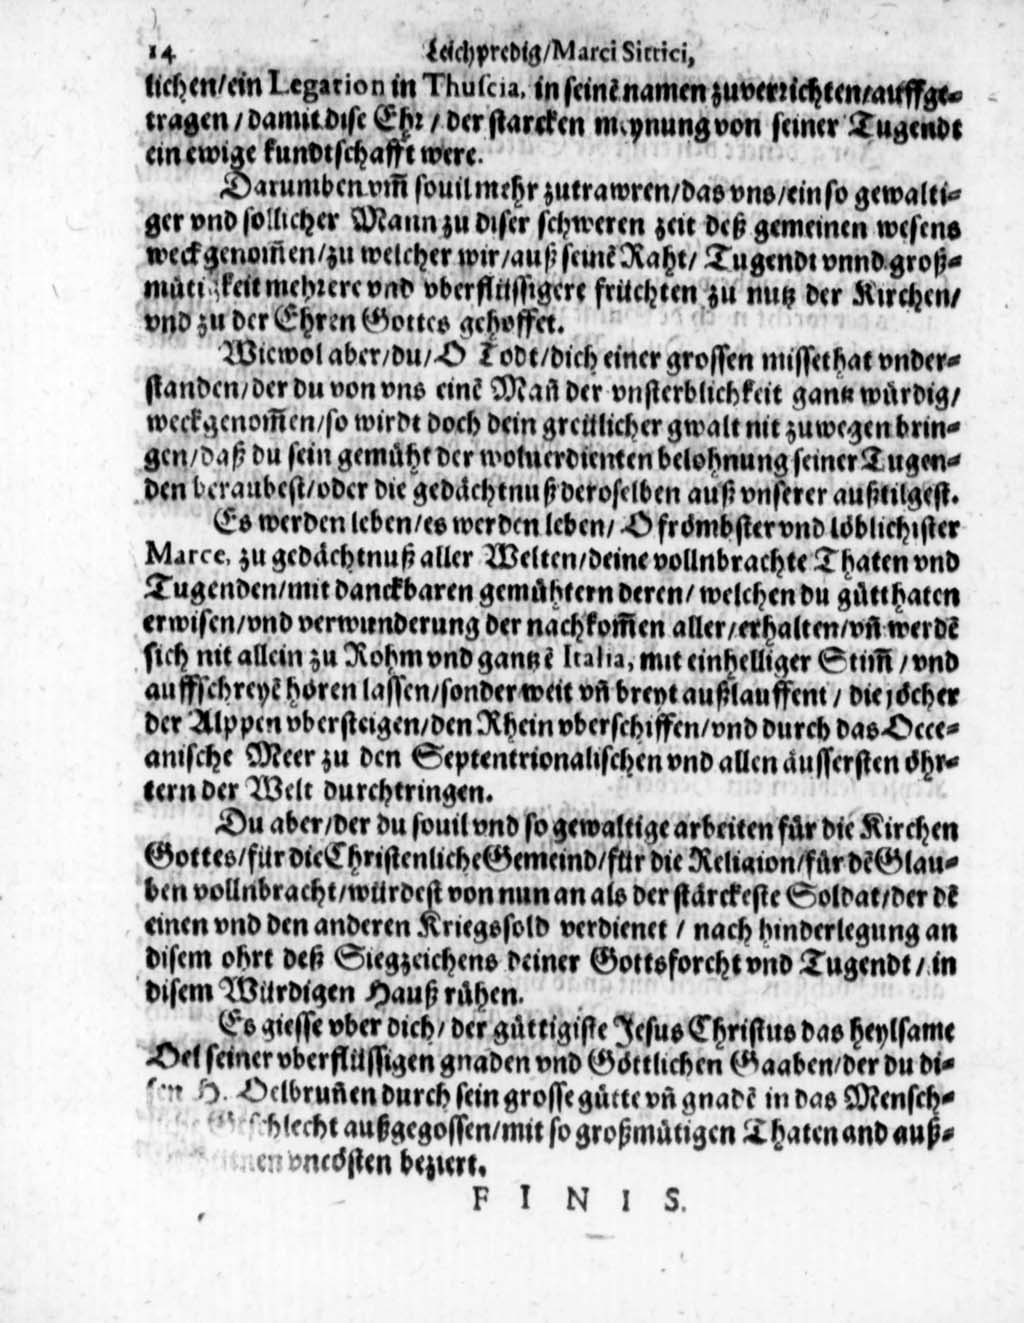 14 Leichpredig/Marci Sittici,
lichen/ein Legation in Thuscia, in seinē namen zuverrichten/auffge-
tragen/damit dise Ehr/der starcken meynung von seiner Tugendt
ein ewige kundtschafft were.
Darumben vm̃ souil mehr zutrawren/das vns/ein so gewalti-
ger vnd sollicher Mann zu diser schweren zeit deß gemeinen wesens
weckgenom̃en/zu welcher wir/auß seinē Raht/Tugendt vnnd groß-
mütigkeit mehrere vnd vberflüssigere früchten zu nutz der Kirchen/
vnd zu der Ehren Gottes gehoffet.
Wiewol aber/du/O Todt/dich einer grossen missethat vnder-
standen/der du von vns einē Mañ der vnsterblichkeit gantz würdig/
weckgenom̃en/so wirdt doch dein grewlicher gwalt nit zuwegen brin-
gen/daß du sein gemüht der woluerdienten belohnung seiner Tugen-
den beraubest/oder die gedächtnuß deroselben auß vnserer außtilgest.
Es werden leben/es werden leben/O frömbster vnd löblichister
Marce, zu gedächtnuß aller Welten/deine vollnbrachte Thaten vnd
Tugenden/mit danckbaren gemühtern deren/welchen du gütthaten
erwisen/vnd verwunderung der nachkom̃en aller/erhalten/vñ werdē
sich nit allein zu Rohm vnd gantzē Italia, mit einhelliger Stim̃/vnd
auffschreyē hören lassen/sonder weit vñ breyt außlauffent/die jöcher
der Alppen vbersteigen/den Rhein vberschiffen/vnd durch das Occe-
anische Meer zu den Septentrionalischen vnd allen äussersten öhr-
tern der Welt durchtringen.
Du aber/der du souil vnd so gewaltige arbeiten für die Kirchen
Gottes/für die Christenliche Gemeind/für die Religion/für dē Glau-
ben vollnbracht/würdest von nun an als der stärckeste Soldat/der dē
einen vnd den anderen Kriegssold verdienet/nach hinderlegung an
disem ohrt deß Siegzeichens deiner Gottsforcht vnd Tugendt/in
disem Würdigen Hauß rühen.
Es giesse vber dich/der güttigiste Jesus Christus das heylsame
Oel seiner vberflüssigen gnaden vnd Göttlichen Gaaben/der du di-
sen H. Oelbruñen durch sein grosse gütte vñ gnadē in das Mensch-
liche Geschlecht außgegossen/mit so großmütigen Thaten and auß-
vncösten beziert.
FINIS.